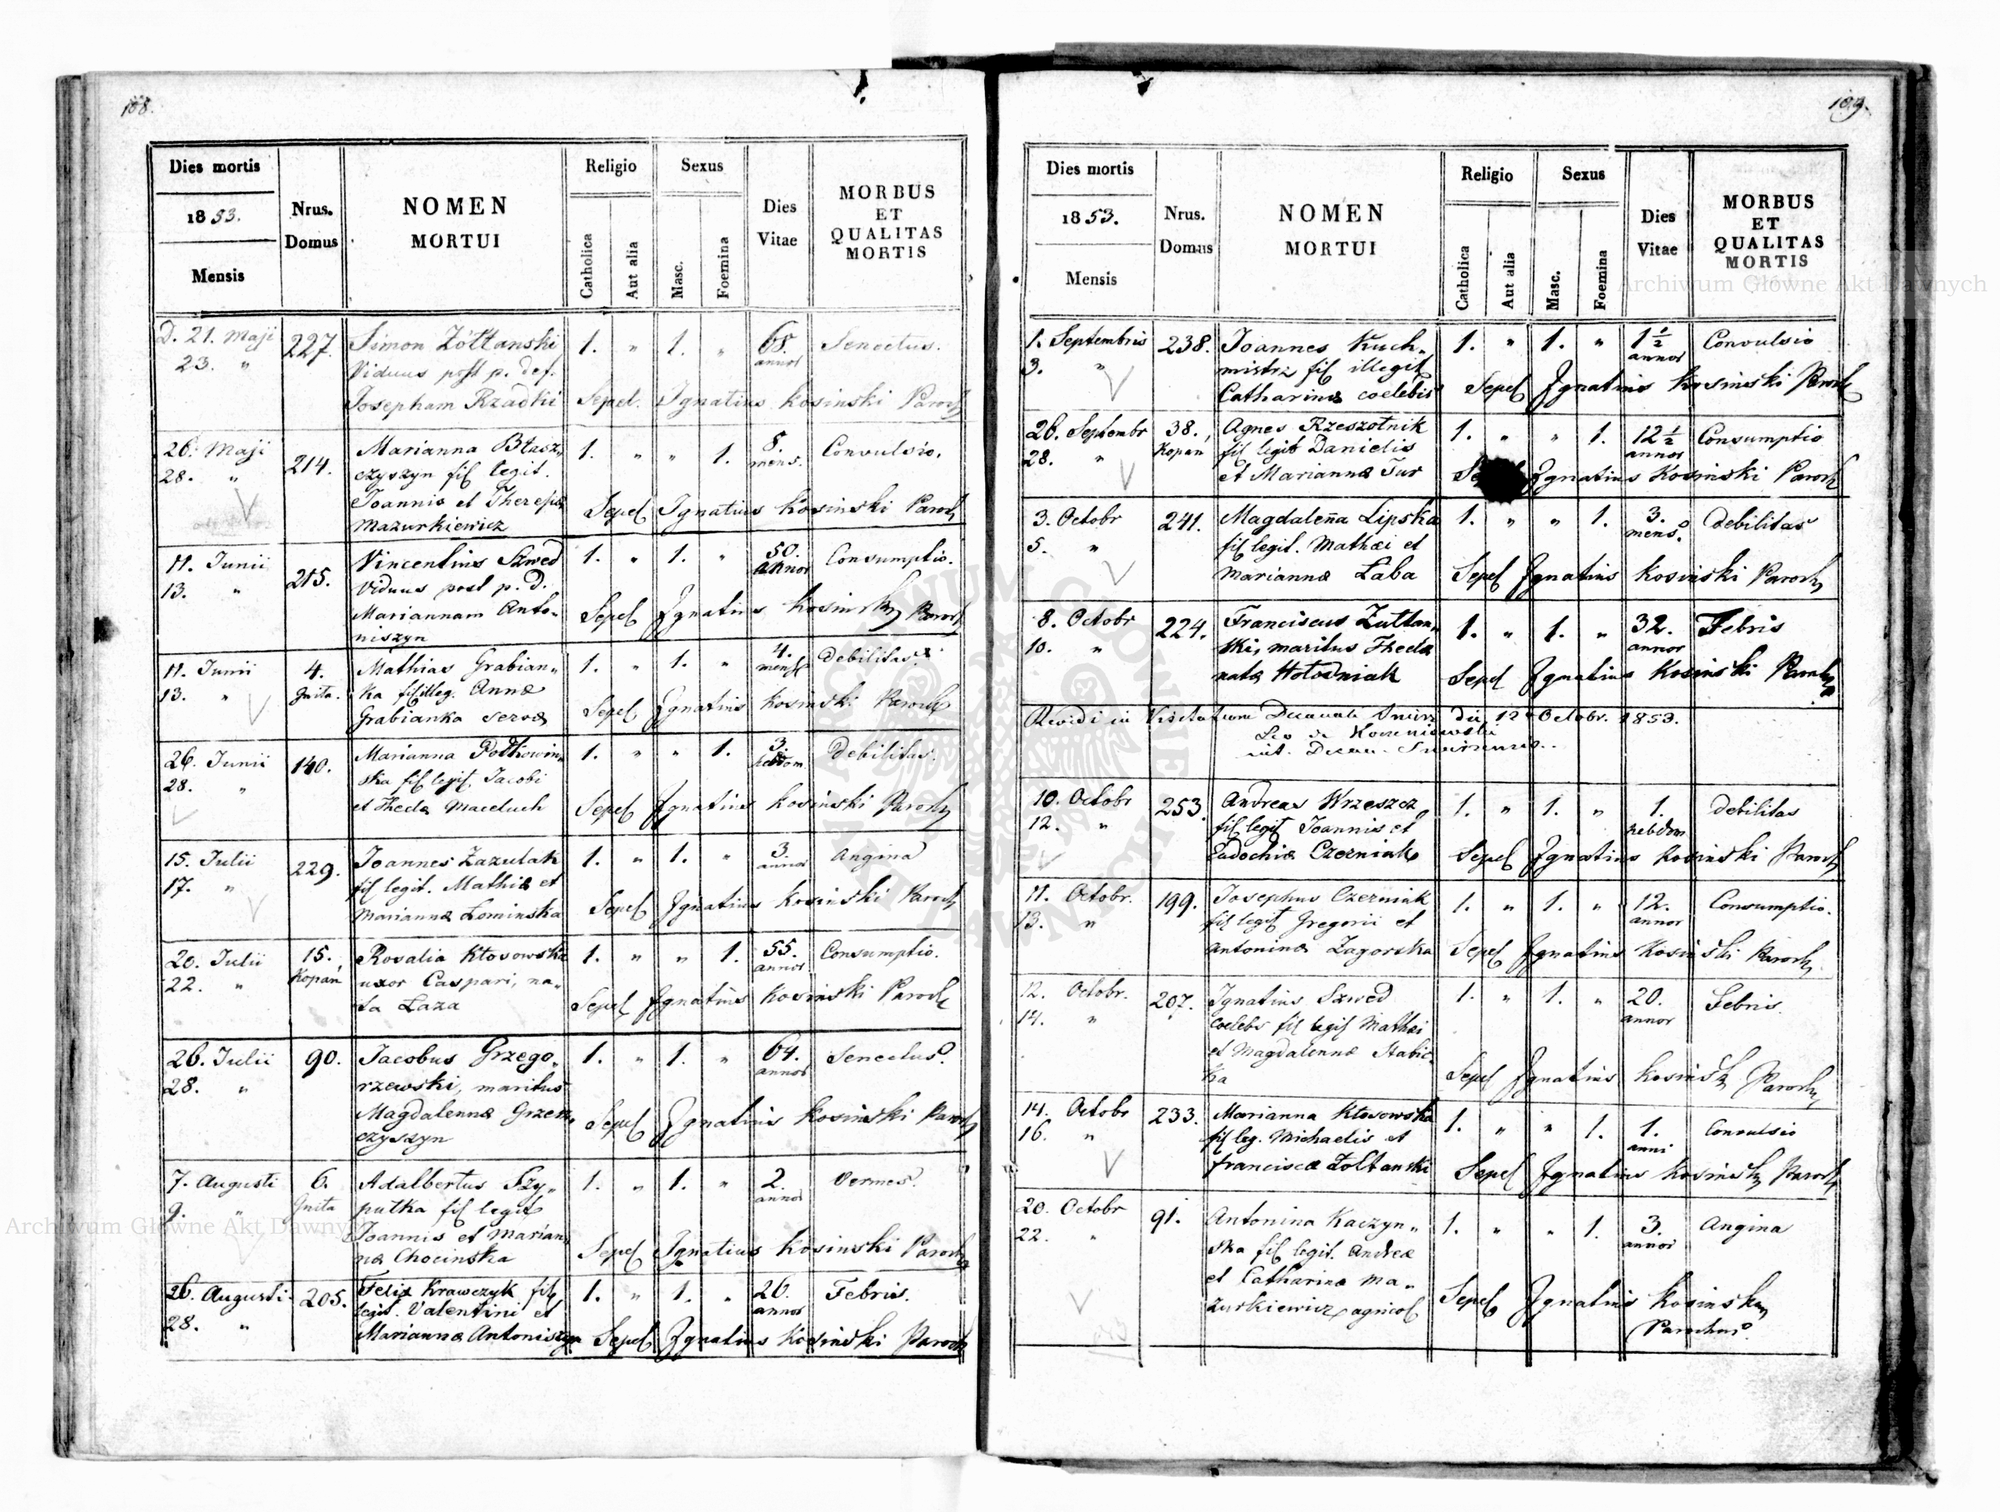 108.
Dies mortis
1853.
Mensis
Nrus.
Domus
NOMEN
MORTUI
Religio
Catholica
Aut alia
Sexus
Masc.
Foemina
Dies
Vitae
MORBUS
ET
QUALITAS
MORTIS
D. 21. Maji 227. Simon Żółtanski 1. " 1. " 68. Senectus.
23. " Viduus post p. def. annor
Josepham Rzadki Sepel. Ignatius Kosinski Paroch
26. Maji 214. Marianna Błasz- 1. " " 1. 8. Convulsio.
28. " czyszyn fil legit. mens.
Joannis et Theresiæ Sepel Ignatius Kosinski Paroch
Mazurkiewicz
11. Junii 215. Vincentius Szwed 1. " 1. " 50. Consumptio.
13. " Viduus post p. d. annor
Mariannam Anto- Sepel Ignatius Kosinski Paroch
niszyn
11. Junii 4. Mathias Grabian- 1. " 1. " 4. Debilitas.
13. " Gnita. ka fil illeg. Annæ mens
Grabianka servæ Sepel Ignatius Kosinski Paroch
26. Junii 140. Marianna 1. " " 1. 3. Debilitas.
28. " ska fil legit Jacobi hebdom
et Theclæ Maceluch Sepel Ignatius Kosinski Paroch
15. Julii 229. Joannes Zazulak 1. " 1. " 3. Angina
17. " fil legit. Mathiæ et annor
Mariannæ Łominska Sepel Ignatius Kosinski Paroch
20. Julii 15. Rosalia Kłosowska 1. " " 1. 55. Consumptio.
22. " Kopań uxor Caspari, na- annor
ta Łaza Sepel Ignatius Kosinski Paroch
26. Julii 90. Jacobus Grzego- 1. " 1. " 64. Senectus.
28. " rzewski, maritus annor
Magdalennæ Grzesz- Sepel Ignatius Kosinski Paroch
czyszyn
7. Augusti 6. Adalbertus Szy- 1. " 1. " 2. Vermes.
9. " Gnita pułka fil legit annor
Joannis et Marian-
næ Chocinska Sepel Ignatius Kosinski Paroch
26. Augusti 205. Felix Krawczyk fil 1. " 1. " 26. Febris.
28. " legit. Valentini et annor
Mariannæ Antoniszyn Sepel Ignatius Kosinski Paroch
109.
Dies mortis
1853.
Mensis
Nrus.
Domus
NOMEN
MORTUI
Religio
Catholica
Aut alia
Sexus
Masc.
Foemina
Dies
Vitae
MORBUS
ET
QUALITAS
MORTIS
1. Septembris 238. Joannes Kuch- 1. " 1. " 1 1/2 Convulsio
3. " mistrz fil illegit annor
Catharinæ coelebis Sepel Ignatius Kosinski Paroch
26. Septembr 38. Agnes Rzeszotnik 1. " " 1. 12 1/2 Consumptio
28. " Kopań fil legit Danielis annor
et Mariannæ Tur Ignatius Kosinski Paroch
3. Octobr 241. Magdalena Lipska 1. " " 1. 3. Debilitas
5. " fil legit. Mathæi et mens.
Mariannæ Łaba Sepel Ignatius Kosinski Paroch
8. Octobr 224. Franciscus Żułtan- 1. " 1. " 32. Febris
10. " ski, maritus Theclæ annor
natæ Hołodniak Sepel Ignatius Kosinski Paroch
Revidi in Visitatione Decanali die 12 Octobr. 1853.
10. Octobr 253. Andreas Wrzeszcz 1. " 1. " 1. Debilitas
12. " fil legit Joannis et hebdom
Eudochiæ Czerniak Sepel Ignatius Kosinski Paroch
11. Octobr. 199. Josephus Czerniak 1. " 1. " 12. Consumptio.
13. " fil legit Gregorii et annor
Antoninæ Zagorska Sepel Ignatius Kosinski Paroch
12. Octobr. 207. Ignatius Szwed 1. " 1. " 20. Febris.
14. " coelebs fil legit Mathæi annor
et Magdalennæ Stabic-
ka Sepel Ignatius Kosinski Paroch
14. Octobr 233. Marianna Kłosowska 1. " " 1. 1. Convulsio
16. " fil leg. Michaelis et anni
Franciscæ Żołtanski Sepel Ignatius Kosinski Paroch
20. Octobr 91. Antonina Kaczyn- 1. " " 1. 3. Angina
22. " ska fil legit. Andreæ annor
et Catharinæ Ma- Sepel Ignatius Kosinski
zurkiewicz, agricol Parochus.
Archiwum Główne Akt Dawnych
Archiwum Główne Akt Dawnych
ARCHIWUM GŁÓWNE AKT DAWNYCH W WARSZAWIE